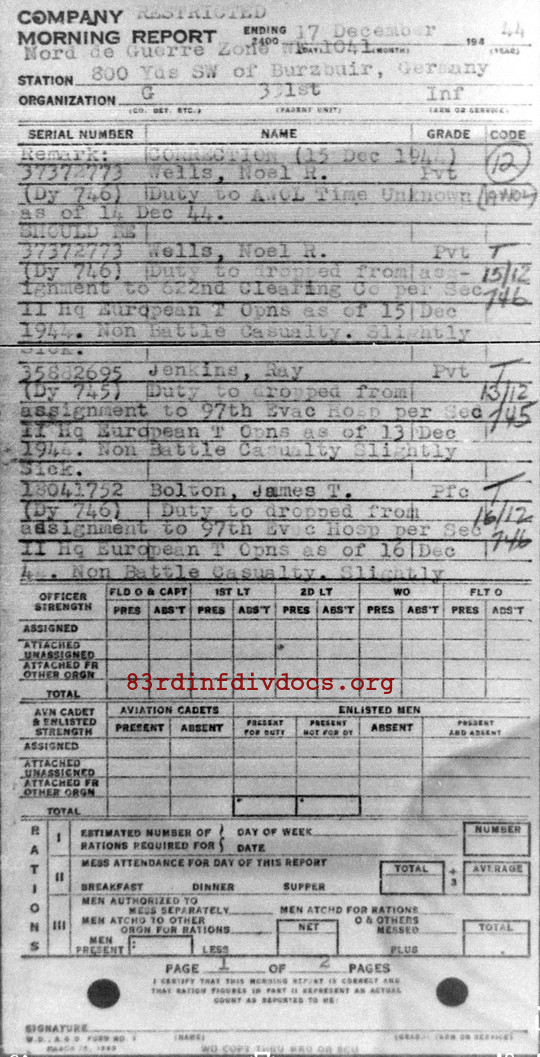 COMPANY RESTRICTED
MORNING REPORT ENDING 2400 17 December 194 44
(DAY) (MONTH) (YEAR)
Nord de Guerre Zone WF 1041
STATION 800 Yds SW of Burzbuir, Germany
ORGANIZATION G 331st Inf
(CO. DET. ETC.) (PARENT UNIT) (ARM OR SERVICE)
SERIAL NUMBER NAME GRADE CODE
Remark: CORRECTION (15 Dec 1944) 12
37372773 Wells, Noel R. Pvt
(Dy 746) Duty to AWOL Time Unknown (AWOL)
as of 14 Dec 44.
SHOULD BE
37372773 Wells, Noel R. Pvt T
(Dy 746) Duty to dropped from ass- 15/12
ignment to 622nd Clearing Co per Sec 746
II Hq European T Opns as of 15 Dec
1944. Non Battle Casualty. Slightly
Sick.
35882695 Jenkins, Ray Pvt T
(Dy 745) Duty to dropped from 13/12
assignment to 97th Evac Hosp per Sec 745
II Hq European T Opns as of 13 Dec
1944. Non Battle Casualty Slightly
Sick.
18041752 Bolton, James T. Pfc T
(Dy 746) Duty to dropped from 16/12
assignment to 97th Evac Hosp per Sec 746
II Hq European T Opns as of 16 Dec
44. Non Battle Casualty. Slightly
OFFICER STRENGTH FLD O & CAPT 1ST LT 2D LT WO FLT O
PRES ABS'T PRES ABS'T PRES ABS'T PRES ABS'T PRES ABS'T
ASSIGNED
ATTACHED UNASSIGNED
ATTACHED FR OTHER ORGN
TOTAL
83rdinfdivdocs.org
AVN CADET & ENLISTED STRENGTH AVIATION CADETS ENLISTED MEN
PRESENT ABSENT PRESENT FOR DUTY PRESENT NOT FOR DY ABSENT PRESENT AND ABSENT
ASSIGNED
ATTACHED UNASSIGNED
ATTACHED FR OTHER ORGN
TOTAL
RATIONS
I ESTIMATED NUMBER OF DAY OF WEEK NUMBER
RATIONS REQUIRED FOR DATE
II MESS ATTENDANCE FOR DAY OF THIS REPORT TOTAL ÷ 3 AVERAGE
BREAKFAST DINNER SUPPER
III MEN AUTHORIZED TO MESS SEPARATELY MEN ATCHD FOR RATIONS
MEN ATCHD TO OTHER ORGN FOR RATIONS NET O & OTHERS MESSED TOTAL
MEN PRESENT LESS PLUS
PAGE 1 OF 2 PAGES
I CERTIFY THAT THIS MORNING REPORT IS CORRECT AND
THAT RATION FIGURES IN PART II REPRESENT AN ACTUAL
COUNT AS REPORTED TO ME:
SIGNATURE
W.D., A.G.O. FORM NO. 1 (NAME) (GRADE) (ARM OR SERVICE)
MARCH
WD COPY THRU MRU OR SCU